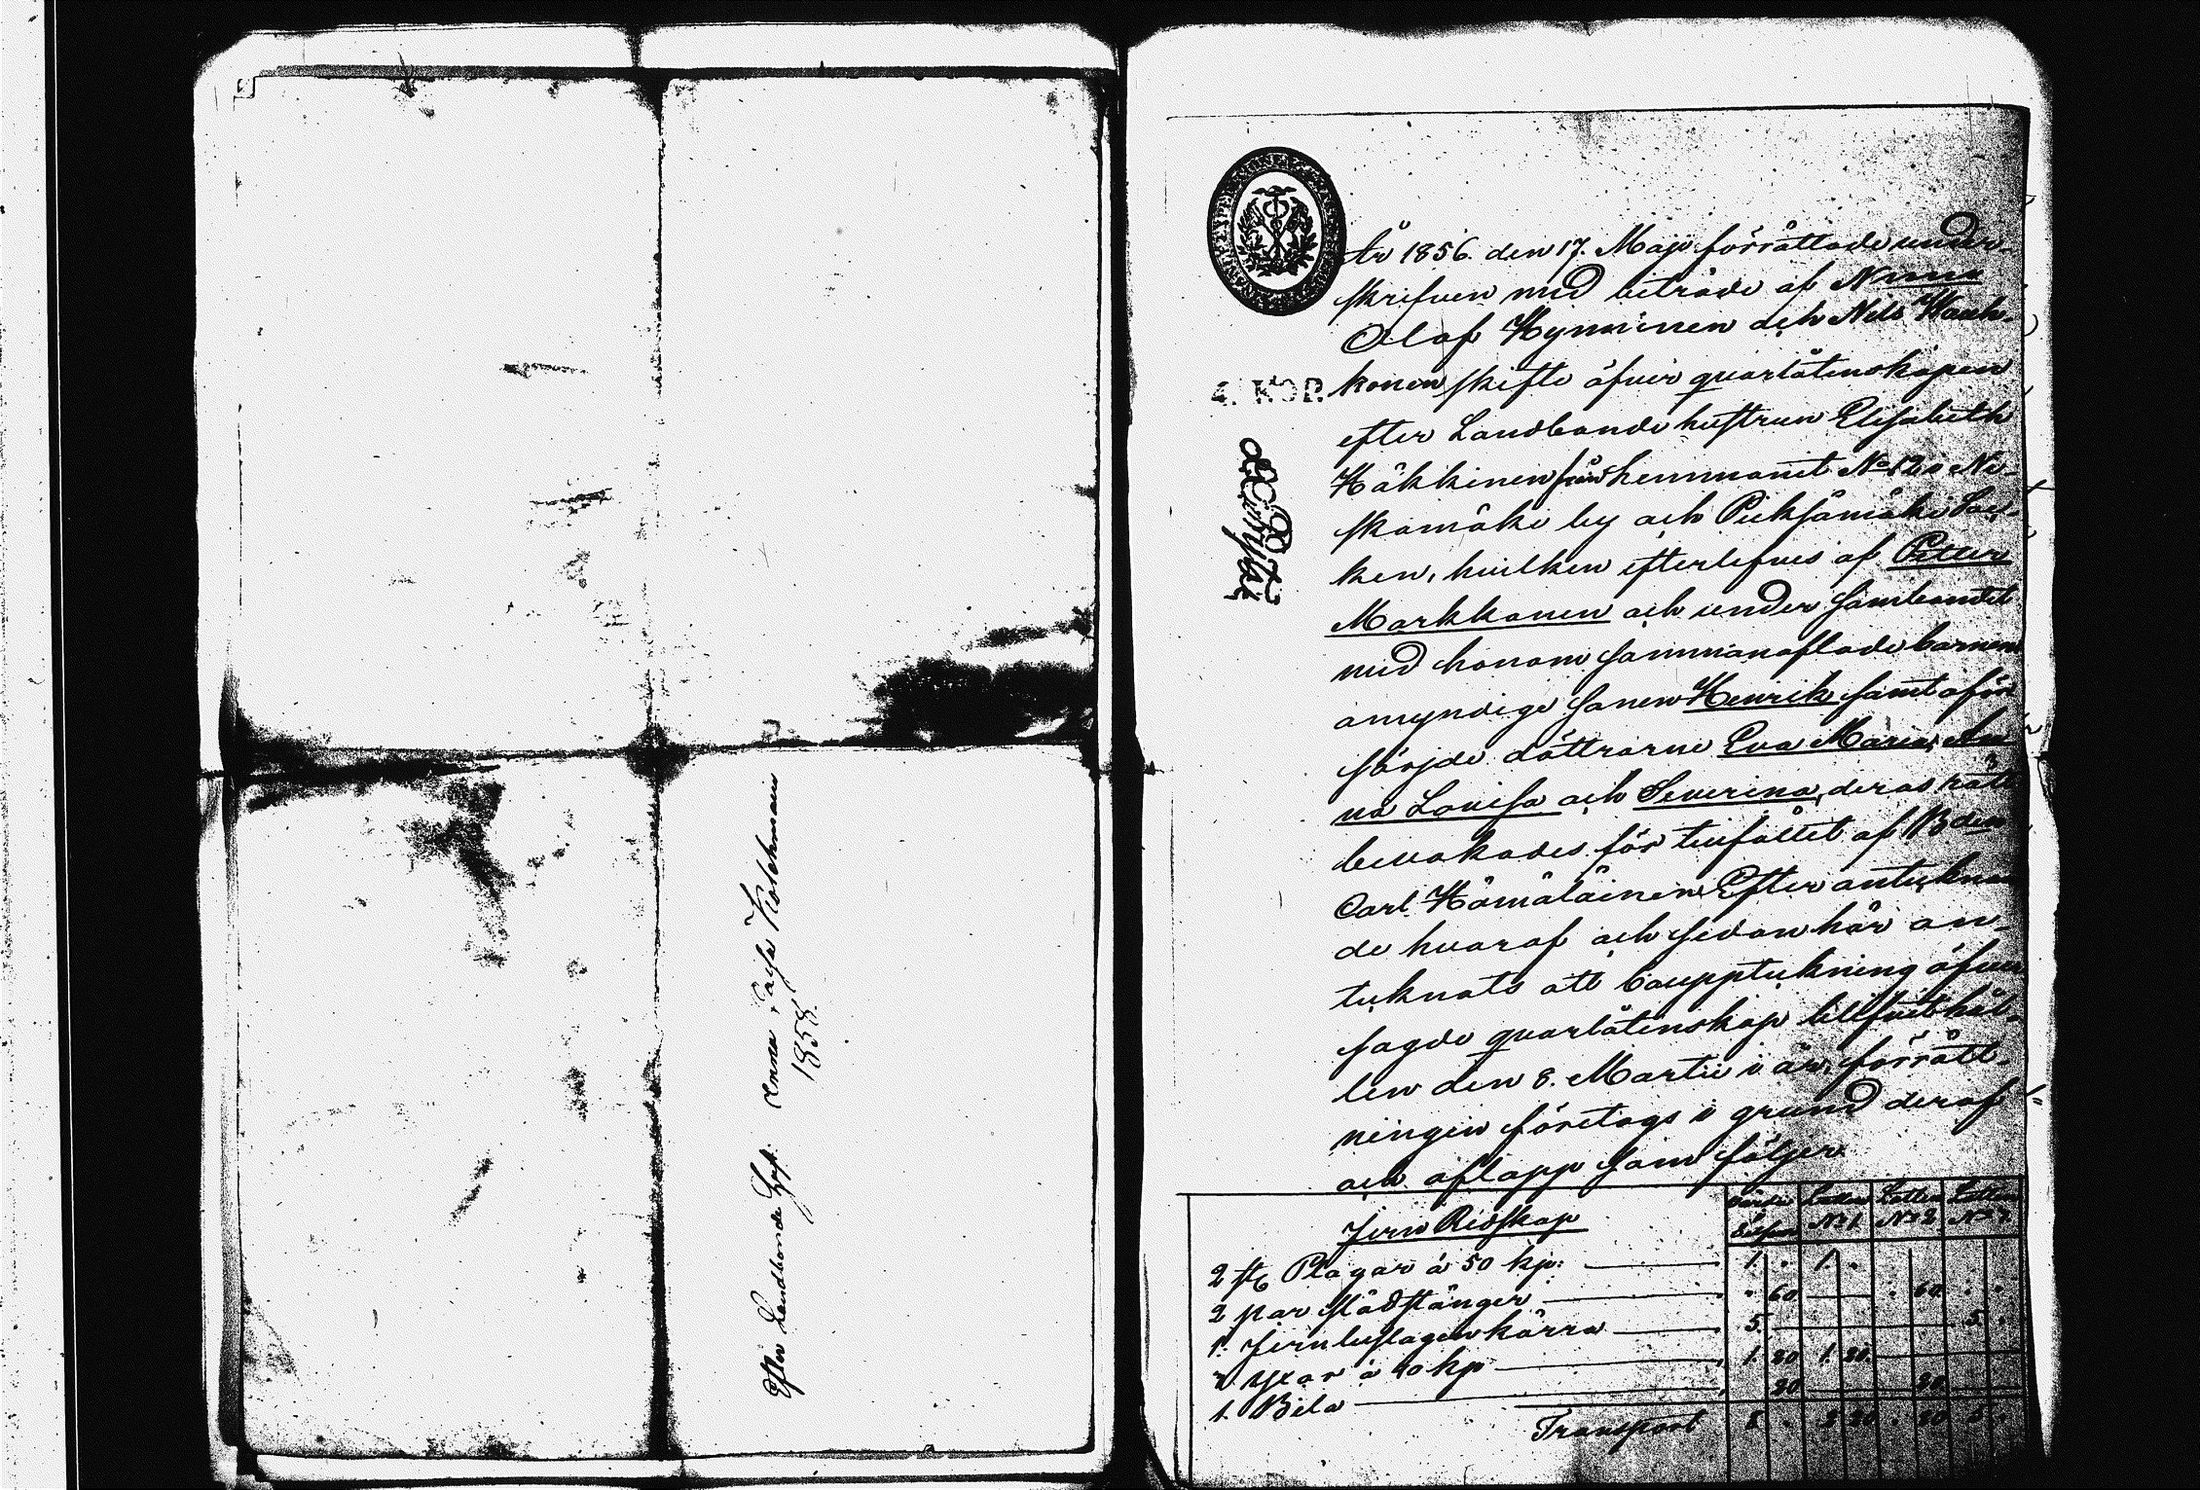 Efter Landbonde Hust. Anna Caisa Kolehmain
1858.
4. KOP.
År 1856 den 17. Maji förrättade under-
skrifven med biträde af Nämnd
Olof Hyvönen och Nils Kauh-
konen skifte öfver qvarlåtenskapen
efter Landbonde hustrun Elisabeth
Häkkinen från hemmanet No 12 i Ni-
skamäki by och Pieksämäki Soc-
ken, hvilken efterlefves af Petter
Markkanen och under sambandet
med honom sammanaflade barnen
omyndige sonen Henrik samt oför-
sörjde döttrarne Eva Maria, An-
na Lovisa och Severina, deras rätt
bevakades för tillfället af Bden
Carl Hämäläinen Efter anteknan-
de hvaraf och sedan här an-
teknats att bouppteckning öfver
sagde qvarlåtenskap blifvit hål-
len den 8. Martii i år, förrätt-
ningen företogs i grund deraf
och aflopp som följer.
Värde Silfver Lotten No 1. Lotten No 2 Lotten No 3
Jern Redskap
2 st Plogar á 50 kp: 1. " 1. "
2 par stödstänger " 60 " 60 " "
1. Jernbeslagen kärra 5. 5. "
3 Yxor á 40 kp 1. 20 1. 20.
1. Bila 20 20
Transport 8 " 2 20 " 80 5 "